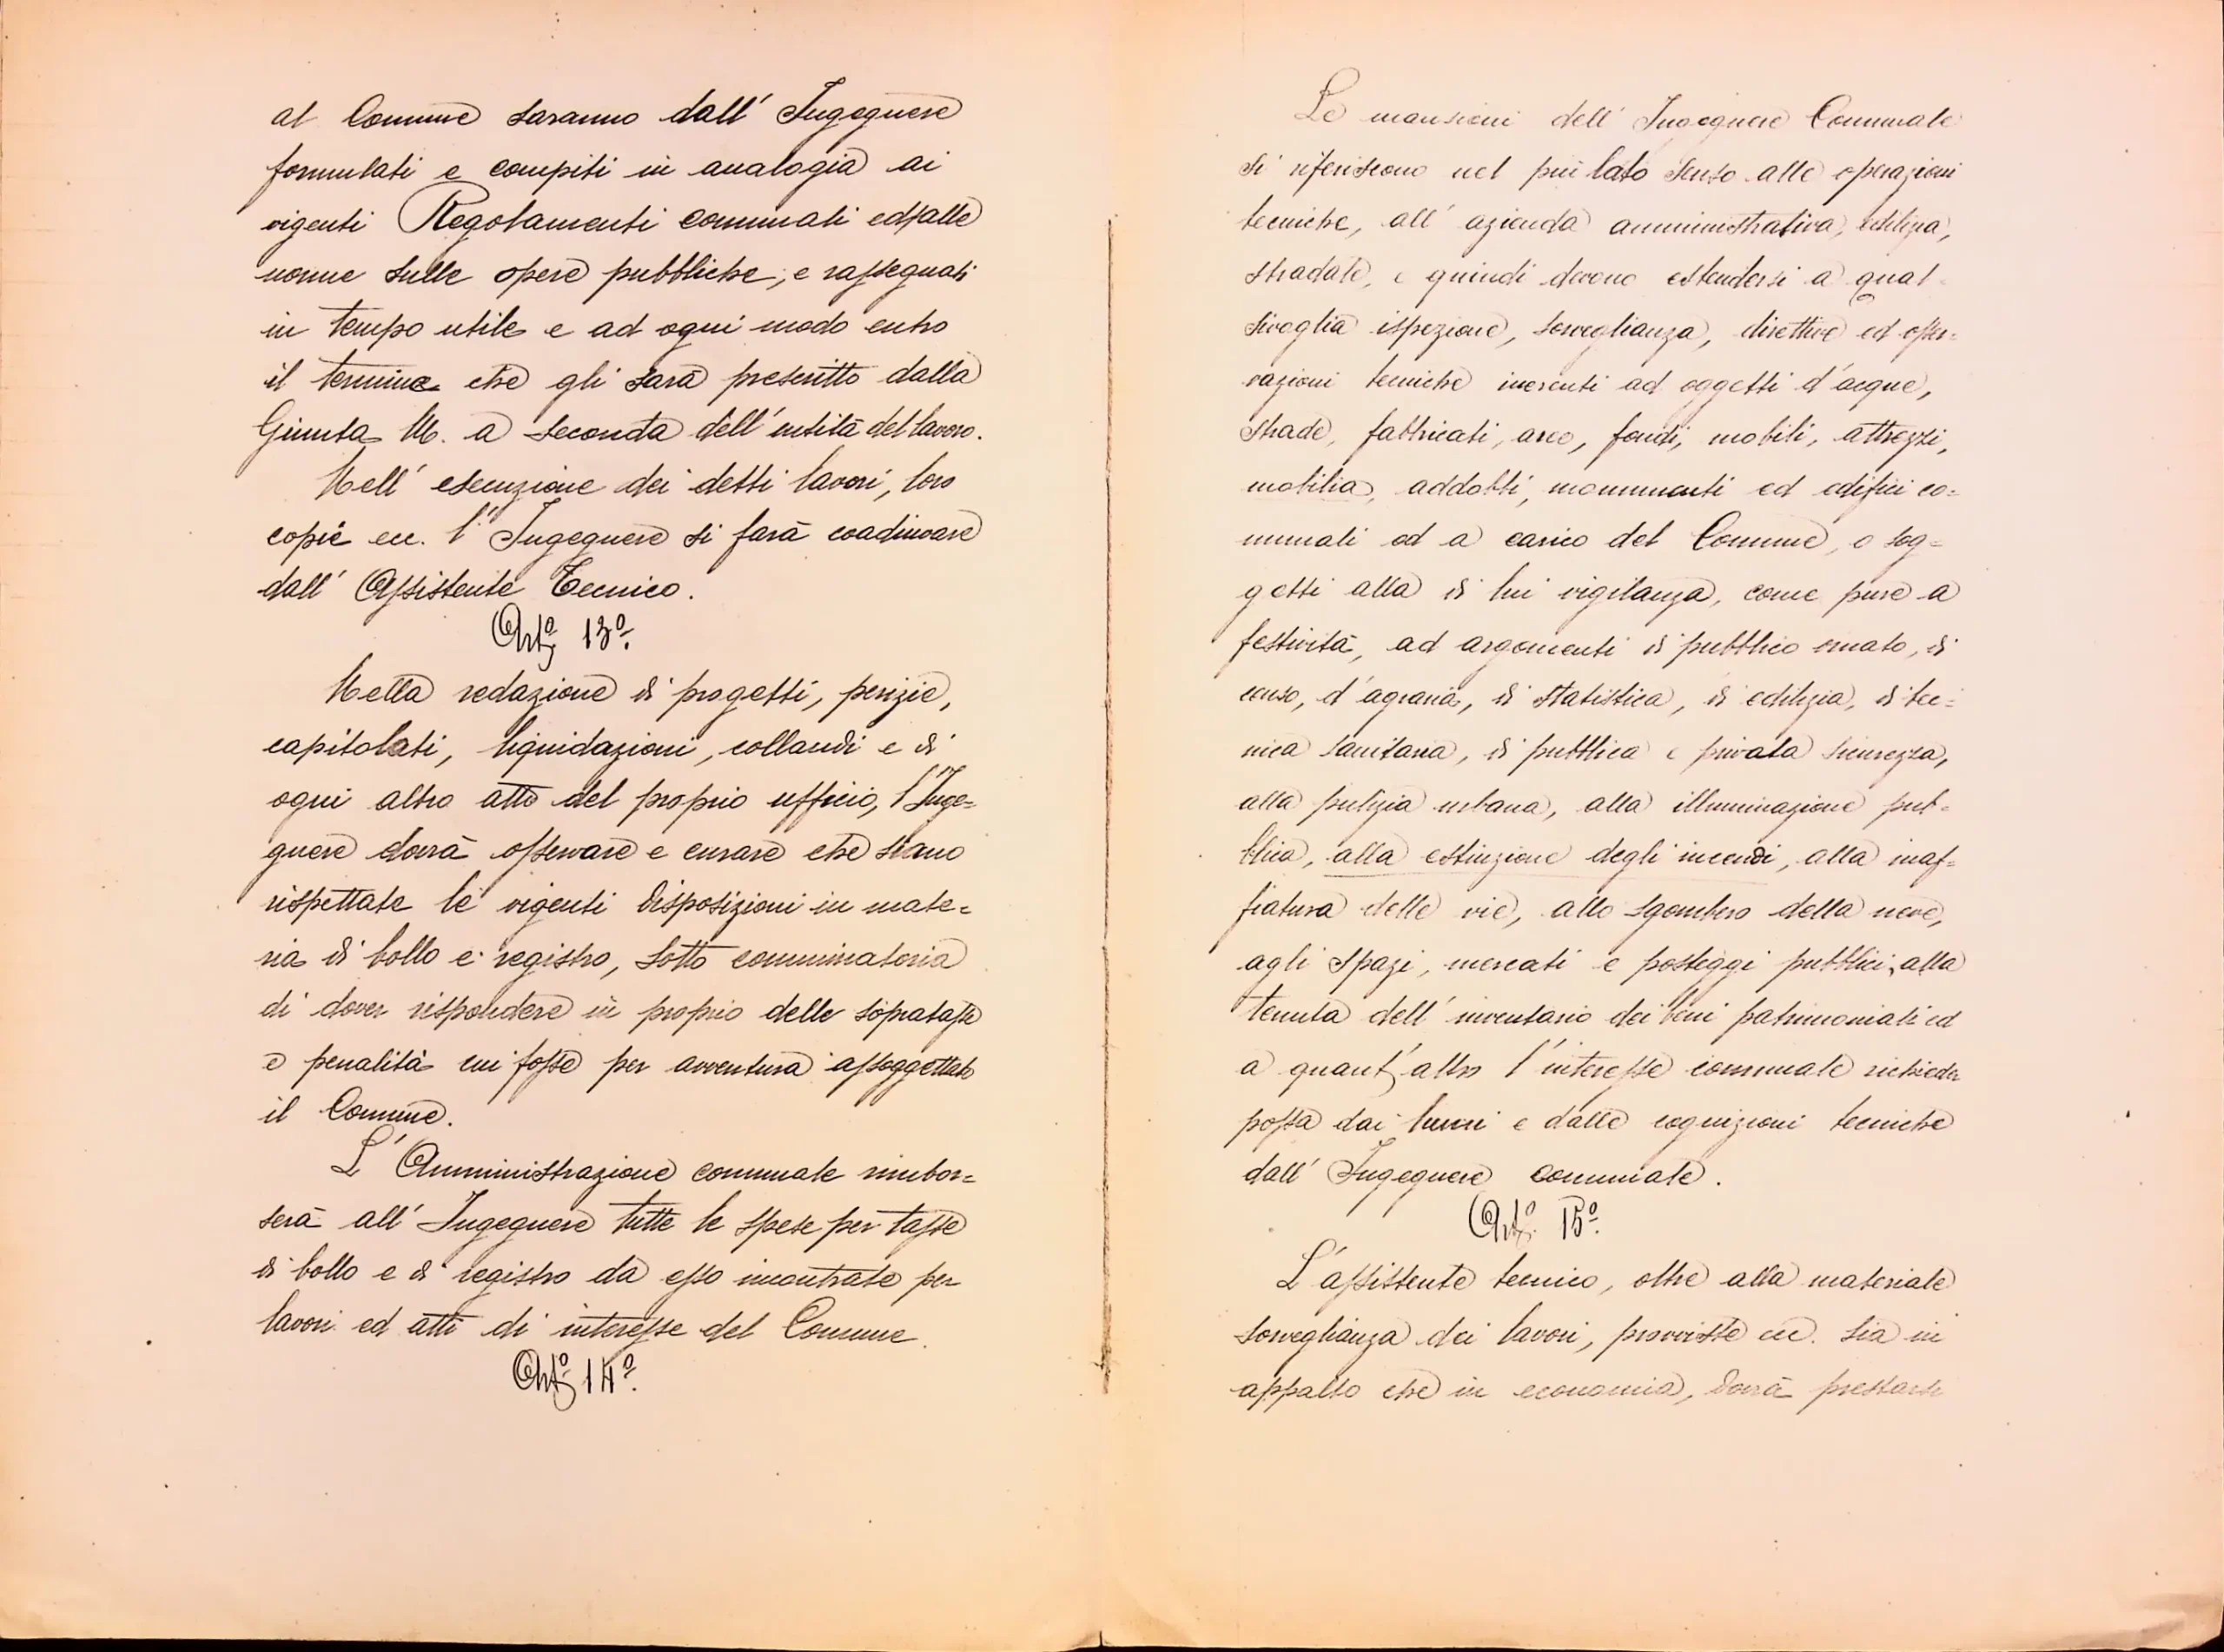 al Comune saranno dall' Ingegnere
formulati e compiti in analogia ai
vigenti Regolamenti comunali ed alle
norme sulle opere pubbliche, e rassegnati
in tempo utile e ad ogni modo entro
il termine che gli sarà prescritto dalla
Giunta M. a seconda dell' entità del lavoro.
Nell' esecuzione dei detti lavori, loro
copie ecc. l' Ingegnere si farà coadiuvare
dall' Assistente Tecnico.
Art.º 13º.
Nella redazione di progetti, perizie,
capitolati, liquidazioni, collaudi e di
ogni altro atto del proprio ufficio, l'Inge=
gnere dovrà osservare e curare che siano
rispettate le vigenti disposizioni in mate=
ria di bollo e registro, sotto comminatoria
di dover rispondere in proprio delle sopratasse
e penalità cui fosse per avventura assoggettato
il Comune.
L' Amministrazione comunale rimbor=
serà all' Ingegnere tutte le spese per tasse
di bollo e di registro da esso incontrate per
lavori ed atti di interesse del Comune.
Art.º 14º.
Le mansioni dell' Ingegnere Comunale
si riferiscono nel più lato senso alle operazioni
tecniche, all' azienda amministrativa, edilizia,
stradale, e quindi devono estendersi a qual=
sivoglia ispezione, sorveglianza, direttive ed osser=
vazioni tecniche inerenti ad oggetti d'acque,
strade, fabbricati, aree, fondi, mobili, attrezzi,
mobilia, addobbi, monumenti ed edifici co=
munali od a carico del Comune, o sog=
getti alla di lui vigilanza, come pure a
festività, ad argomenti di pubblico ornato, di
censo, d'agraria, di statistica, di edilizia, di tec=
nica sanitaria, di pubblica e privata sicurezza,
alla pulizia urbana, alla illuminazione pub=
blica, alla estinzione degli incendi, alla inaf=
fiatura delle vie, allo sgombero della neve,
agli spazi, mercati e posteggi pubblici, alla
tenuta dell' inventario dei beni patrimoniali ed
a quant'altro l'interesse comunale richieder
possa dai lumi e dalle cognizioni tecniche
dall' Ingegnere comunale.
Art.º 15º.
L'assistente tecnico, oltre alla materiale
sorveglianza dei lavori, provviste ecc. sia in
appalto che in economia, dovrà prestarsi